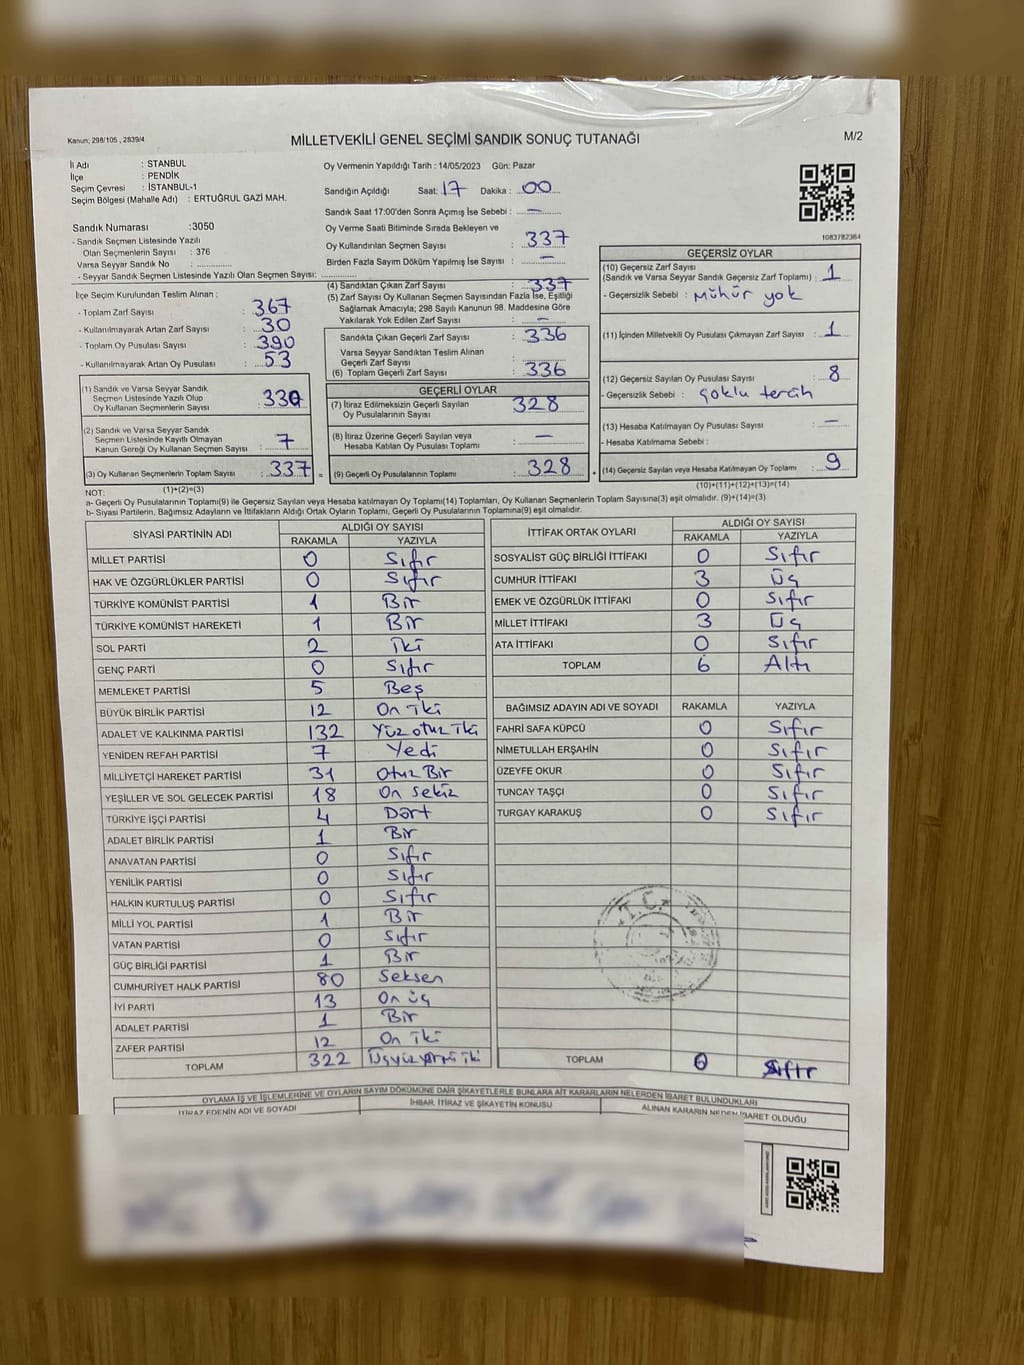 Kanun; 298/105 , 2839/4
MİLLETVEKİLİ GENEL SEÇİMİ SANDIK SONUÇ TUTANAĞI
M/2
İl Adı : STANBUL
İlçe : PENDİK
Seçim Çevresi : İSTANBUL-1
Seçim Bölgesi (Mahalle Adı) : ERTUĞRUL GAZİ MAH.
Sandık Numarası :3050
- Sandık Seçmen Listesinde Yazılı
Olan Seçmenlerin Sayısı : 376
Varsa Seyyar Sandık No :
- Seyyar Sandık Seçmen Listesinde Yazılı Olan Seçmen Sayısı:
Oy Vermenin Yapıldığı Tarih : 14/05/2023 Gün: Pazar
Sandığın Açıldığı Saat: 17 Dakika : 00
Sandık Saat 17:00'den Sonra Açımış İse Sebebi : —
Oy Verme Saati Bitiminde Sırada Bekleyen ve
Oy Kullandırılan Seçmen Sayısı : 337
Birden Fazla Sayım Döküm Yapılmış İse Sayısı : —
1083782364
İlçe Seçim Kurulundan Teslim Alınan ;
- Toplam Zarf Sayısı : 367
- Kullanılmayarak Artan Zarf Sayısı : 30
- Toplam Oy Pusulası Sayısı : 390
- Kullanılmayarak Artan Oy Pusulası : 53
(1) Sandık ve Varsa Seyyar Sandık
Seçmen Listesinde Yazılı Olup
Oy Kullanan Seçmenlerin Sayısı : 330
(2) Sandık ve Varsa Seyyar Sandık
Seçmen Listesinde Kayıtlı Olmayan
Kanun Gereği Oy Kullanan Seçmen Sayısı : 7
(3) Oy Kullanan Seçmenlerin Toplam Sayısı : 337
(1)+(2)=(3)
(4) Sandıktan Çıkan Zarf Sayısı : 337
(5) Zarf Sayısı Oy Kullanan Seçmen Sayısından Fazla İse, Eşitliği
Sağlamak Amacıyla; 298 Sayılı Kanunun 98. Maddesine Göre
Yakılarak Yok Edilen Zarf Sayısı : —
Sandıkta Çıkan Geçerli Zarf Sayısı : 336
Varsa Seyyar Sandıktan Teslim Alınan
Geçerli Zarf Sayısı :
(6) Toplam Geçerli Zarf Sayısı : 336
GEÇERLİ OYLAR
(7) İtiraz Edilmeksizin Geçerli Sayılan
Oy Pusulalarının Sayısı : 328
(8) İtiraz Üzerine Geçerli Sayılan veya
Hesaba Katılan Oy Pusulası Toplamı : —
= (9) Geçerli Oy Pusulalarının Toplamı : 328
GEÇERSİZ OYLAR
(10) Geçersiz Zarf Sayısı
(Sandık ve Varsa Seyyar Sandık Geçersiz Zarf Toplamı) : 1
- Geçersizlik Sebebi : Mühür yok
(11) İçinden Milletvekili Oy Pusulası Çıkmayan Zarf Sayısı : 1
(12) Geçersiz Sayılan Oy Pusulası Sayısı : 8
- Geçersizlik Sebebi : Çoklu tercih
(13) Hesaba Katılmayan Oy Pusulası Sayısı : —
- Hesaba Katılmama Sebebi :
+ (14) Geçersiz Sayılan veya Hesaba Katılmayan Oy Toplamı : 9
(10)+(11)+(12)+(13)=(14)
NOT:
a- Geçerli Oy Pusulalarının Toplamı(9) ile Geçersiz Sayılan veya Hesaba katılmayan Oy Toplamı(14) Toplamları, Oy Kullanan Seçmenlerin Toplam Sayısına(3) eşit olmalıdır. (9)+(14)=(3)
b- Siyasi Partilerin, Bağımsız Adayların ve İttifakların Aldığı Ortak Oyların Toplamı, Geçerli Oy Pusulalarının Toplamına(9) eşit olmalıdır.
SİYASİ PARTİNİN ADI ALDIĞI OY SAYISI
RAKAMLA YAZIYLA
MİLLET PARTİSİ 0 Sıfır
HAK VE ÖZGÜRLÜKLER PARTİSİ 0 Sıfır
TÜRKİYE KOMÜNİST PARTİSİ 1 Bir
TÜRKİYE KOMÜNİST HAREKETİ 1 Bir
SOL PARTİ 2 İki
GENÇ PARTİ 0 Sıfır
MEMLEKET PARTİSİ 5 Beş
BÜYÜK BİRLİK PARTİSİ 12 On iki
ADALET VE KALKINMA PARTİSİ 132 Yüz otuz iki
YENİDEN REFAH PARTİSİ 7 Yedi
MİLLİYETÇİ HAREKET PARTİSİ 31 Otuz Bir
YEŞİLLER VE SOL GELECEK PARTİSİ 18 On sekiz
TÜRKİYE İŞÇİ PARTİSİ 4 Dört
ADALET BİRLİK PARTİSİ 1 Bir
ANAVATAN PARTİSİ 0 Sıfır
YENİLİK PARTİSİ 0 Sıfır
HALKIN KURTULUŞ PARTİSİ 0 Sıfır
MİLLİ YOL PARTİSİ 1 Bir
VATAN PARTİSİ 0 Sıfır
GÜÇ BİRLİĞİ PARTİSİ 1 Bir
CUMHURİYET HALK PARTİSİ 80 Seksen
İYİ PARTİ 13 On üç
ADALET PARTİSİ 1 Bir
ZAFER PARTİSİ 12 On iki
TOPLAM 322 Üçyüz yirmi iki
İTTİFAK ORTAK OYLARI ALDIĞI OY SAYISI
RAKAMLA YAZIYLA
SOSYALİST GÜÇ BİRLİĞİ İTTİFAKI 0 Sıfır
CUMHUR İTTİFAKI 3 Üç
EMEK VE ÖZGÜRLÜK İTTİFAKI 0 Sıfır
MİLLET İTTİFAKI 3 Üç
ATA İTTİFAKI 0 Sıfır
TOPLAM 6 Altı
BAĞIMSIZ ADAYIN ADI VE SOYADI RAKAMLA YAZIYLA
FAHRİ SAFA KÜPCÜ 0 Sıfır
NİMETULLAH ERŞAHİN 0 Sıfır
ÜZEYFE OKUR 0 Sıfır
TUNCAY TAŞÇI 0 Sıfır
TURGAY KARAKUŞ 0 Sıfır
T.C.
TOPLAM 0 Sıfır
OYLAMA İŞ VE İŞLEMLERİNE VE OYLARIN SAYIM DÖKÜMÜNE DAİR ŞİKAYETLERLE BUNLARA AİT KARARLARIN NELERDEN İBARET BULUNDUKLARI
İTİRAZ EDENİN ADI VE SOYADI İHBAR, İTİRAZ VE ŞİKAYETİN KONUSU ALINAN KARARIN NEDEN İBARET OLDUĞU